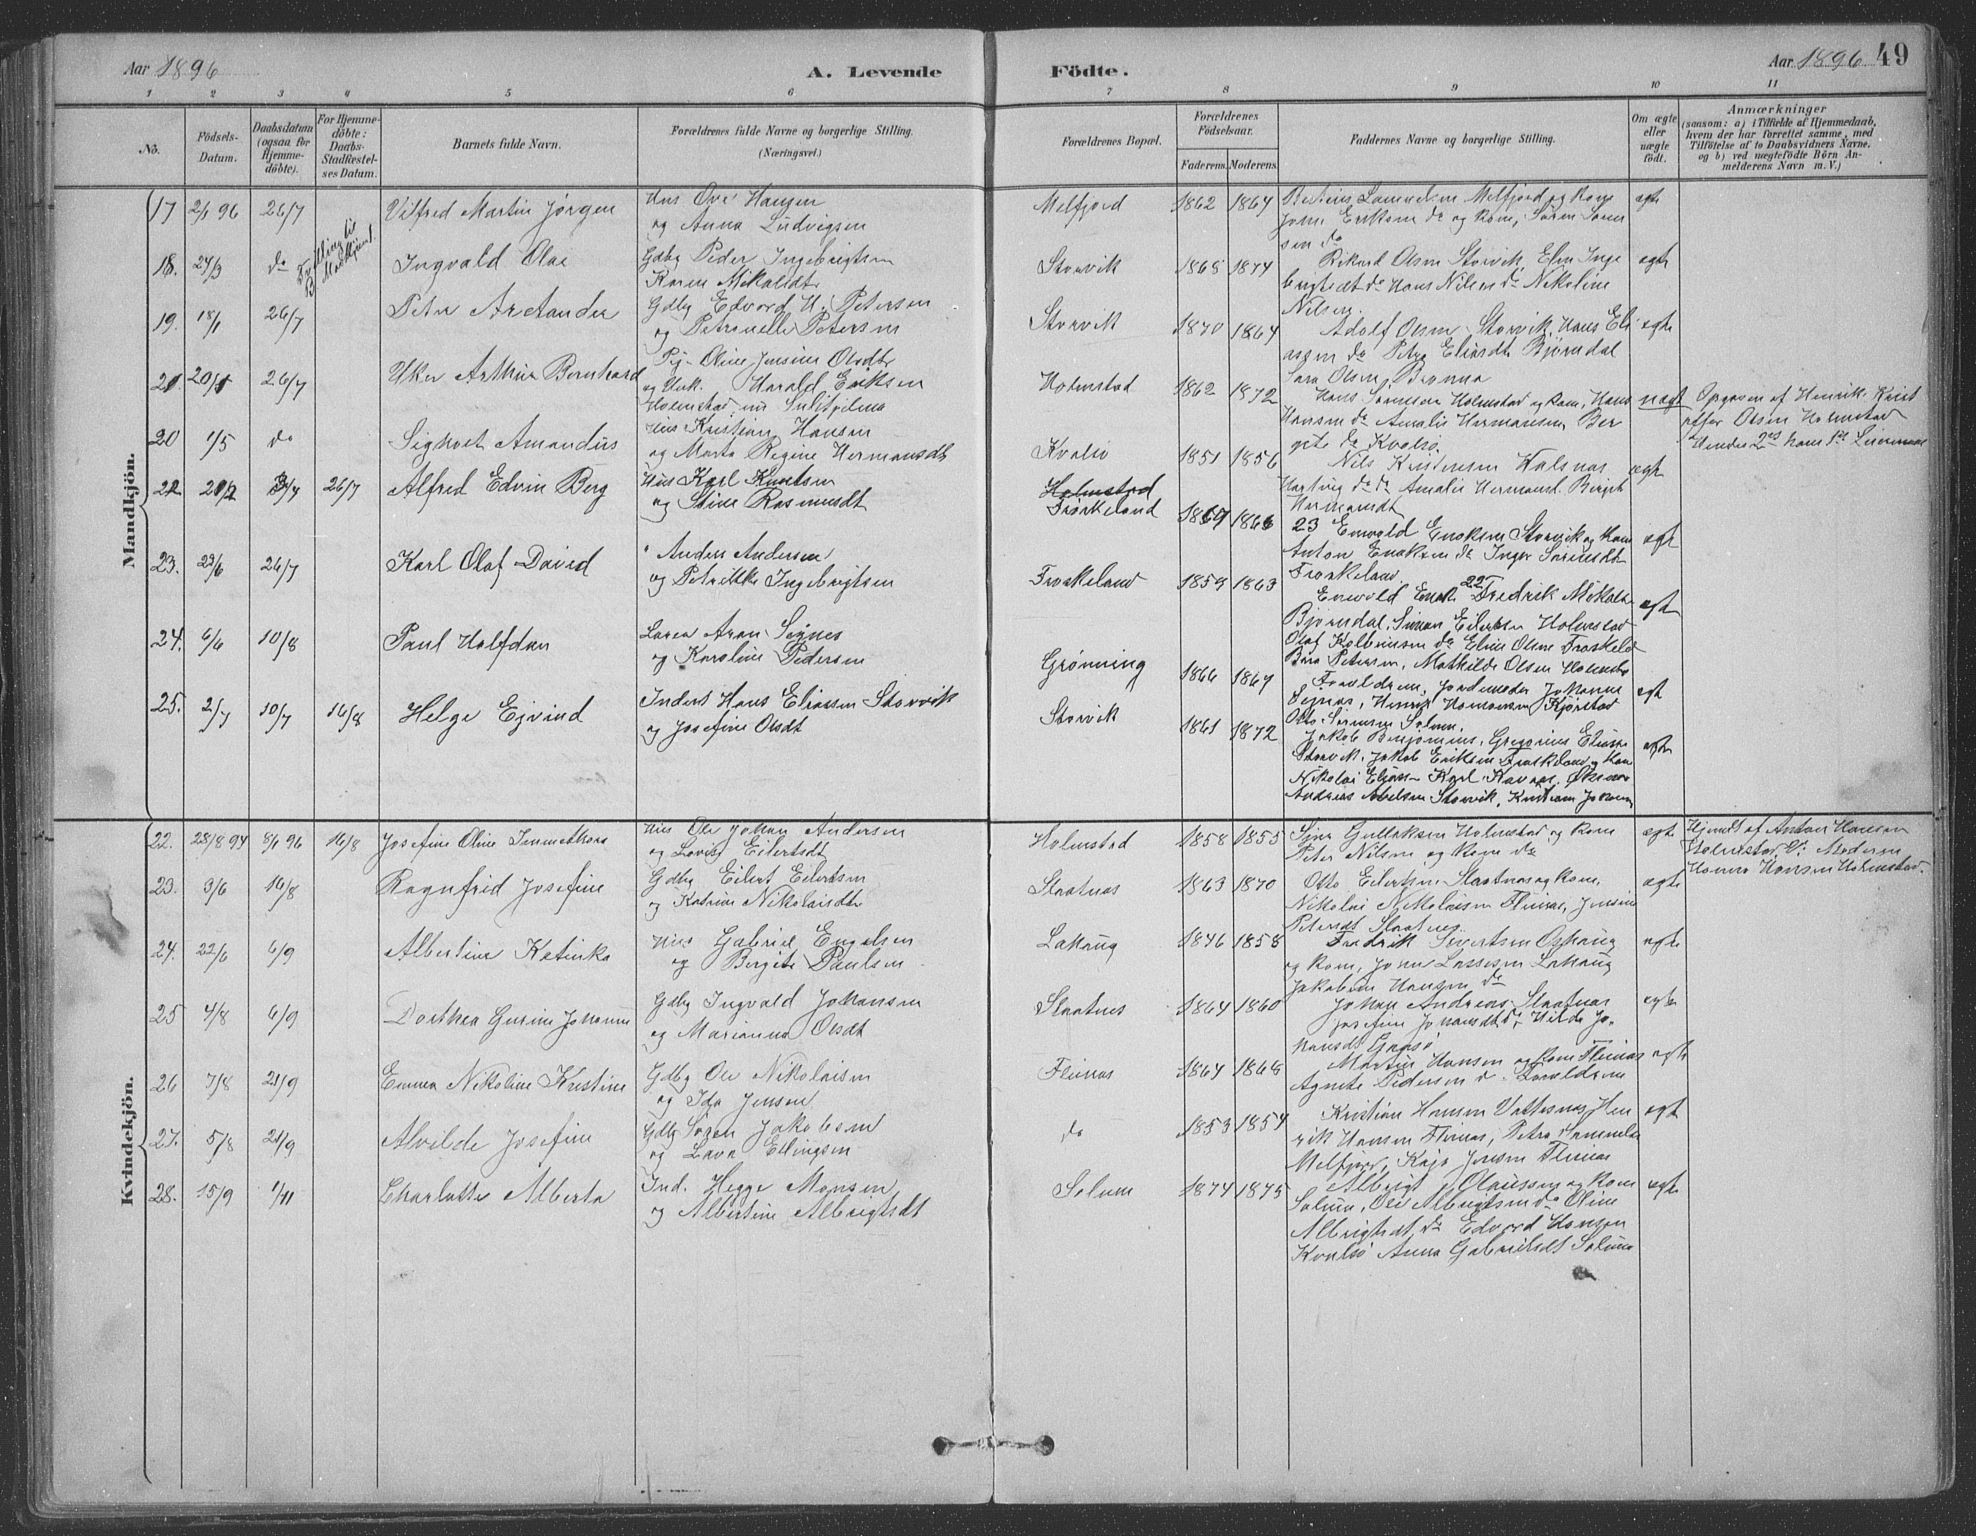 Aar 1896
A. Levende Födte.
Aar 1896 49
1 2 3 4 5 6 7 8 9 10 11
No.
Födsels-Datum.
Daabsdatum (ogsaa for Hjemme-döbte).
For Hjemme-döbte: Daabs-Stadfæstel-ses Datum.
Barnets fulde Navn.
Forældrenes fulde Navne og borgerlige Stilling.
(Næringsvei.)
Forældrenes Bopæl.
Forældrenes Födselsaar.
Faderens. Moderens.
Faddernes Navne og borgerlige Stilling.
Om ægte eller nægte födt.
Anmærkninger
(saasom: a) i Tilfælde af Hjemmedaab,
hvem der har forrettet samme, med
Tilföielse af to Daabsvidners Navne.
og b) ved nægtefödte Börn An-
melderens Navn m. V.)
Mandkjön.
17 2/1 96 26/7 Vilfred Martin Jørgen
Hus Ove Hansen
og Anna Ludvigsen
Melfjord 1862 1864
Melfjord og Kone
Jons Eriksen do og Kone, Søren Søren
sen do
ægte
18. 24/3 do
Tvilling til
Ingvald Olai
Gdbr Peder Ingebrigtsen
Karen Mikalsdt
Storvik 1868 1874
Rikard Olsen Storvik Elen Inge
brigtsdt do Hans Nilsen do Nikoline
Nilsen.
ægte
19. 18/1 26/7 Peter Arctander
Gdbr Edvard H. Petersen
og Petronelle Petersen
Storvik 1870 1864
Adolf Olsen Storvik, Hans Eli
assen do Petra Eliasdt Bjørndal
Sara Olsen Brønna
ægte
21 20/1 26/7 Arthur Bernhard
Pig. Oline Jensine Olsdt
og Harald Eriksen
Holmstad nu Sulitjelma
Holmstad 1862 1872
Hans Sørensen Holmstad og Kone, Hans
Hansen do Amalie Hermansen Ber
gite do Kvalsø.
nægt
Opgiven af Henrik Krist
offer Olsen Holmstad
Hendes 2det hans 1ste Leiermaal
20 1/5 do Sighvat Amandus
Hus Kristian Hansen
og Marta Regine Hermansdt
Kvalsø 1851 1856
Nils Kristensen Halsnæs
Hartvig do do Amalie Hermansd. Bergit
Hermansdt
ægte
22. 26/7 Alfred Edvin Berg
Hus Karl Knutsen
og Stine Rasmusdt
Holmstad
Froskeland 1866
23 Envold Enoksen Storvik og Kone
Anton Enoksen do Inger Sørensdt
Froskeland
ægt
23. 29/6 26/7 Karl Olaf David
" Anders Andersen
og Petrikke Ingebrigtsen
Froskeland 1859 1863
Envold Enok 22 Fredrik Mikals
Bjørndal, Simon Eilertsen Holmstad
Olaf Kolbeinsen do Eline Olsen Froskeld
ægt
24. 6/6 10/8 Paul Halfdan
Lærer Aron Signes
og Karoline Pedersen
Grønning 1866 1869
Petersen, Mathilde Olsen Holmstad
Forældrene, Jordemoder Johanna
Sejnæs, Henrik Hansen Kjørstad
Otto Sørensen Selnes,
ægt
25. 2/7 10/7 16/8 Helge Ejvind
Inderst Hans Eliassen Storvik
og Josefine Olsdt
Storvik 1861 1872
Jakob Benjamins, Gregorius Elias
Storvik, Jakob Eriksen Froskeland og Kone
Nikolai Eliasen Karl Øksnes
Andreas Abelsen Storvik, Kristian Johan
ægte
Kvindekjön.
22. 28/8 94 8/1 96 16/8 Josefine Oline
Hus Ole Johan Andersen
og Lovise Eilertsdt
Holmstad 1858 1855
Gullaksen Holmstad og Kone
Peter Nilsen og Kone do
ægte
Hjemdt af Anton Hansen
Holmstad V: Moderen
Hanna Hansen Holmstad.
23. 3/6 16/8 Ragnfrid Josefine
Gdbr Eilert Eilertsen
og Katrine Nikolaisdt
Slaatnes 1863 1870
Otto Eilertsen Slaatnes og Kone,
Nikolai Nikolaisen Flinæs, Jensine
Petersdt Slaatnes.
ægte
24. 22/6 6/9 Albertine Katinka
Hus Gabriel Engelsen
og Bergite Paulsen
Lahaug 1846 1858
Fredrik Sivertsen Oshaug
og Kone, Joner Lassesen Lahaug
Jakobine Hansen do
ægte
25 4/8 6/9 Dorthea Gurine Johanne
Gdbr Ingvald Johansen
og Marianna Olsdt
Slaatnes 1864 1860
Johan Andreas Slaatnes
Josefine Johansdt do, Hilda Jo
hansdt Gaasø
ægte
26 7/8 21/9 Emma Nikoline Kristine
Gdbr Ole Nikolaisen
og Ida Jensen
Flinæs 1864 1868
Martin Hansen og Kone Flinæs
Agnete Pedersen do Forældrene
ægte
27. 5/8 21/9 Alvilde Josefine
Gdbr Søren Jakobsen
og Lava Ellingsen
do 1853 1854
Kristine Hansen Vottesnes Hen
rik Hansen Flinæs, Petra Sammelse
Melfjord, Kaja Jensen Flinæs
ægt
28. 15/9 1/11 Charlotte Alberta
Ind. Hegge Monsen
og Albertine Albrigtsdt
Selnes 1874 1875
Albrigt Olaussen og Kone
Selnes, Ole Albrigtsen do Oline
Albrigtsdt do Edvard Hansen
Kvalsø Anna Gabrielsdt Selnes
ægte